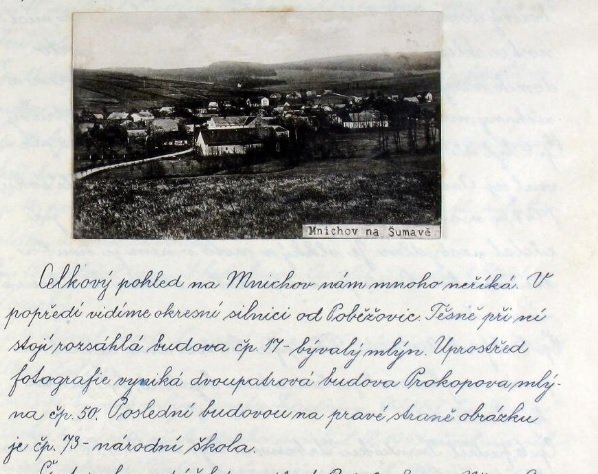 Mnichov na Šumavě
Celkový pohled na Mnichov nám mnoho neříká. V
popředí vidíme okresní silnici od Poběžovic. Těsně při ní
stojí rozsáhlá budova čp. 17 - bývalý mlýn. Uprostřed
fotografie vyniká dvoupatrová budova Prokopova mlý-
na čp. 50. Poslední budovou na pravé straně obrázku
je čp. 73 - národní škola.